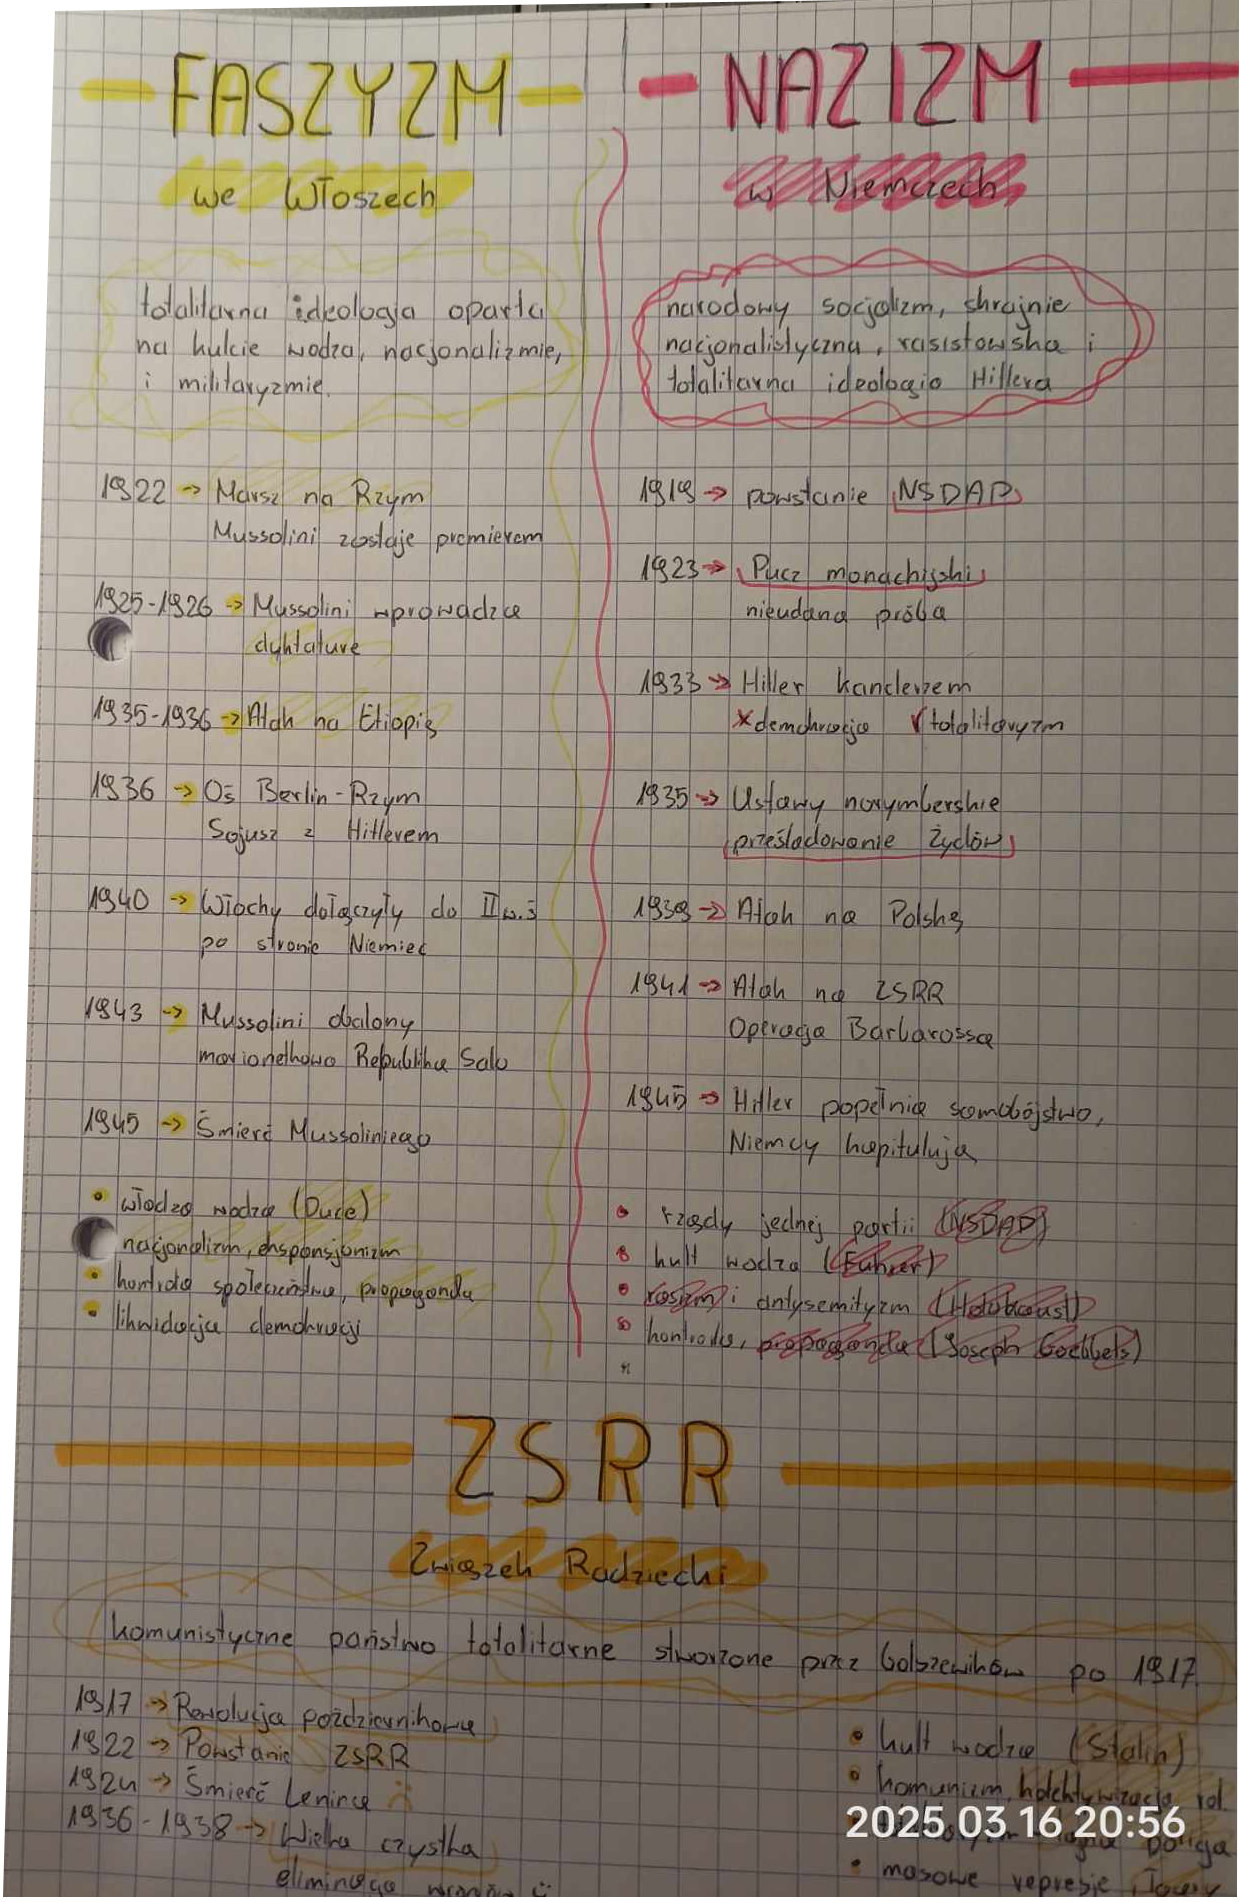 FASZYZM
we Włoszech
totalitarna ideologia oparta
na kulcie wodza, nacjonalizmie,
i militaryzmie.
1922 → Marsz na Rzym
Mussolini zostaje premierem
1925-1926 → Mussolini wprowadza
dyktature
1935-1936 → Atak na Etiopię
1936 → Oś Berlin-Rzym
Sojusz z Hitlerem
1940 → Włochy dołączyły do II w.ś
po stronie Niemiec
1943 → Mussolini obalony
marionetkowa Republika Salo
1945 → Śmierć Mussoliniego
• władza wodza (Duce)
nacjonalizm, ekspansjonizm
• kontrola społeczeństwa, propaganda
• likwidacja demokracji
NAZIZM
w Niemczech
narodowy socjalizm, skrajnie
nacjonalistyczna, rasistowska i
totalitarna ideologia Hitlera
1919 → powstanie NSDAP
1923 → Pucz monachijski
nieudana próba
1933 → Hitler kanclerzem
x demokracja √ totalitaryzm
1935 → Ustawy norymberskie
prześladowanie Żydów
1939 → Atak na Polskę
1941 → Atak na ZSRR
Operacja Barbarossa
1945 → Hitler popełnia samobójstwo,
Niemcy kapitulują
• rządy jednej partii (NSDAP)
• kult wodza (Führer)
• rasizm i antysemityzm (Holokaust)
• kontrola, propaganda (Joseph Goebbels)
ZSRR
Związek Radziecki
komunistyczne państwo totalitarne stworzone przez bolszewików po 1917.
1917 → Rewolucja październikowa
1922 → Powstanie ZSRR
1924 → Śmierć Lenina
1936-1938 → Wielka czystka
eliminacja wrogów
• kult wodza (Stalin)
• komunizm, kolektywizacja rol.
policja
• masowe represje
2025.03.16 20:56